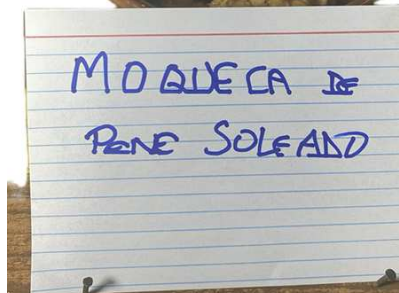 MOQUECA DE
PENE SOLEADO